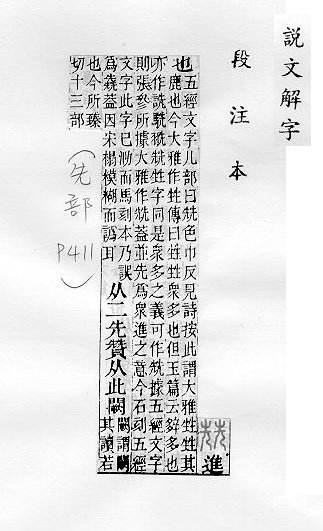 說文解字
段注本
兟
進
也五經文字儿部曰兟色巾反見詩按此謂大雅甡甡其
鹿也今大雅作甡傳曰甡甡衆多也但玉篇云多也
亦作詵駪兟甡字同是衆多之義可作兟據五經文字
則張參所據大雅作兟蓋並先爲衆進之意今石刻五經
文字此字已泐而馬刻本乃誤
爲兟蓋因宋榻模糊而譌耳
从二先贊从此闕
闕謂闕
其讀若
也今所臻
切十三部
(先部 P411)